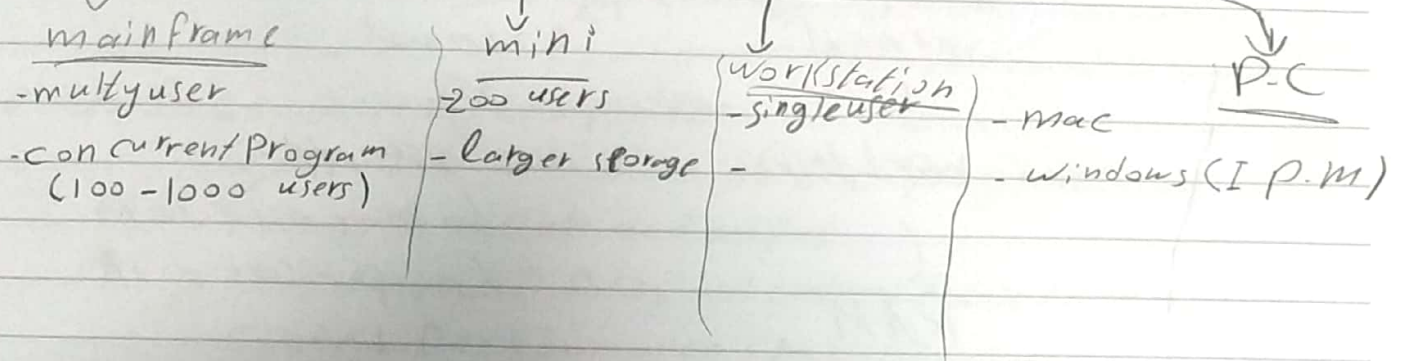 mainframe
-multyuser
-concurrent Program
(100-1000 users)
mini
-200 users
- larger storage
workstation
- singleuser
-
P.C
- mac
- windows (I P.M)